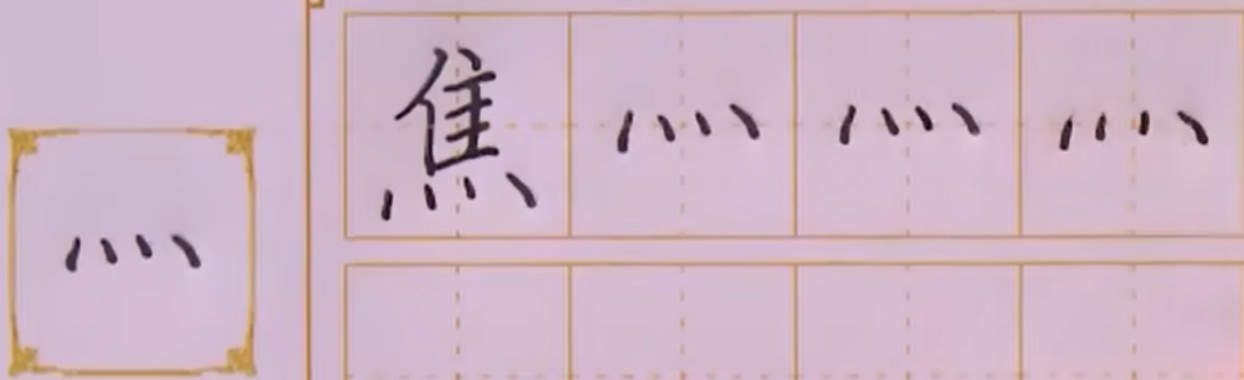 灬
焦灬灬灬